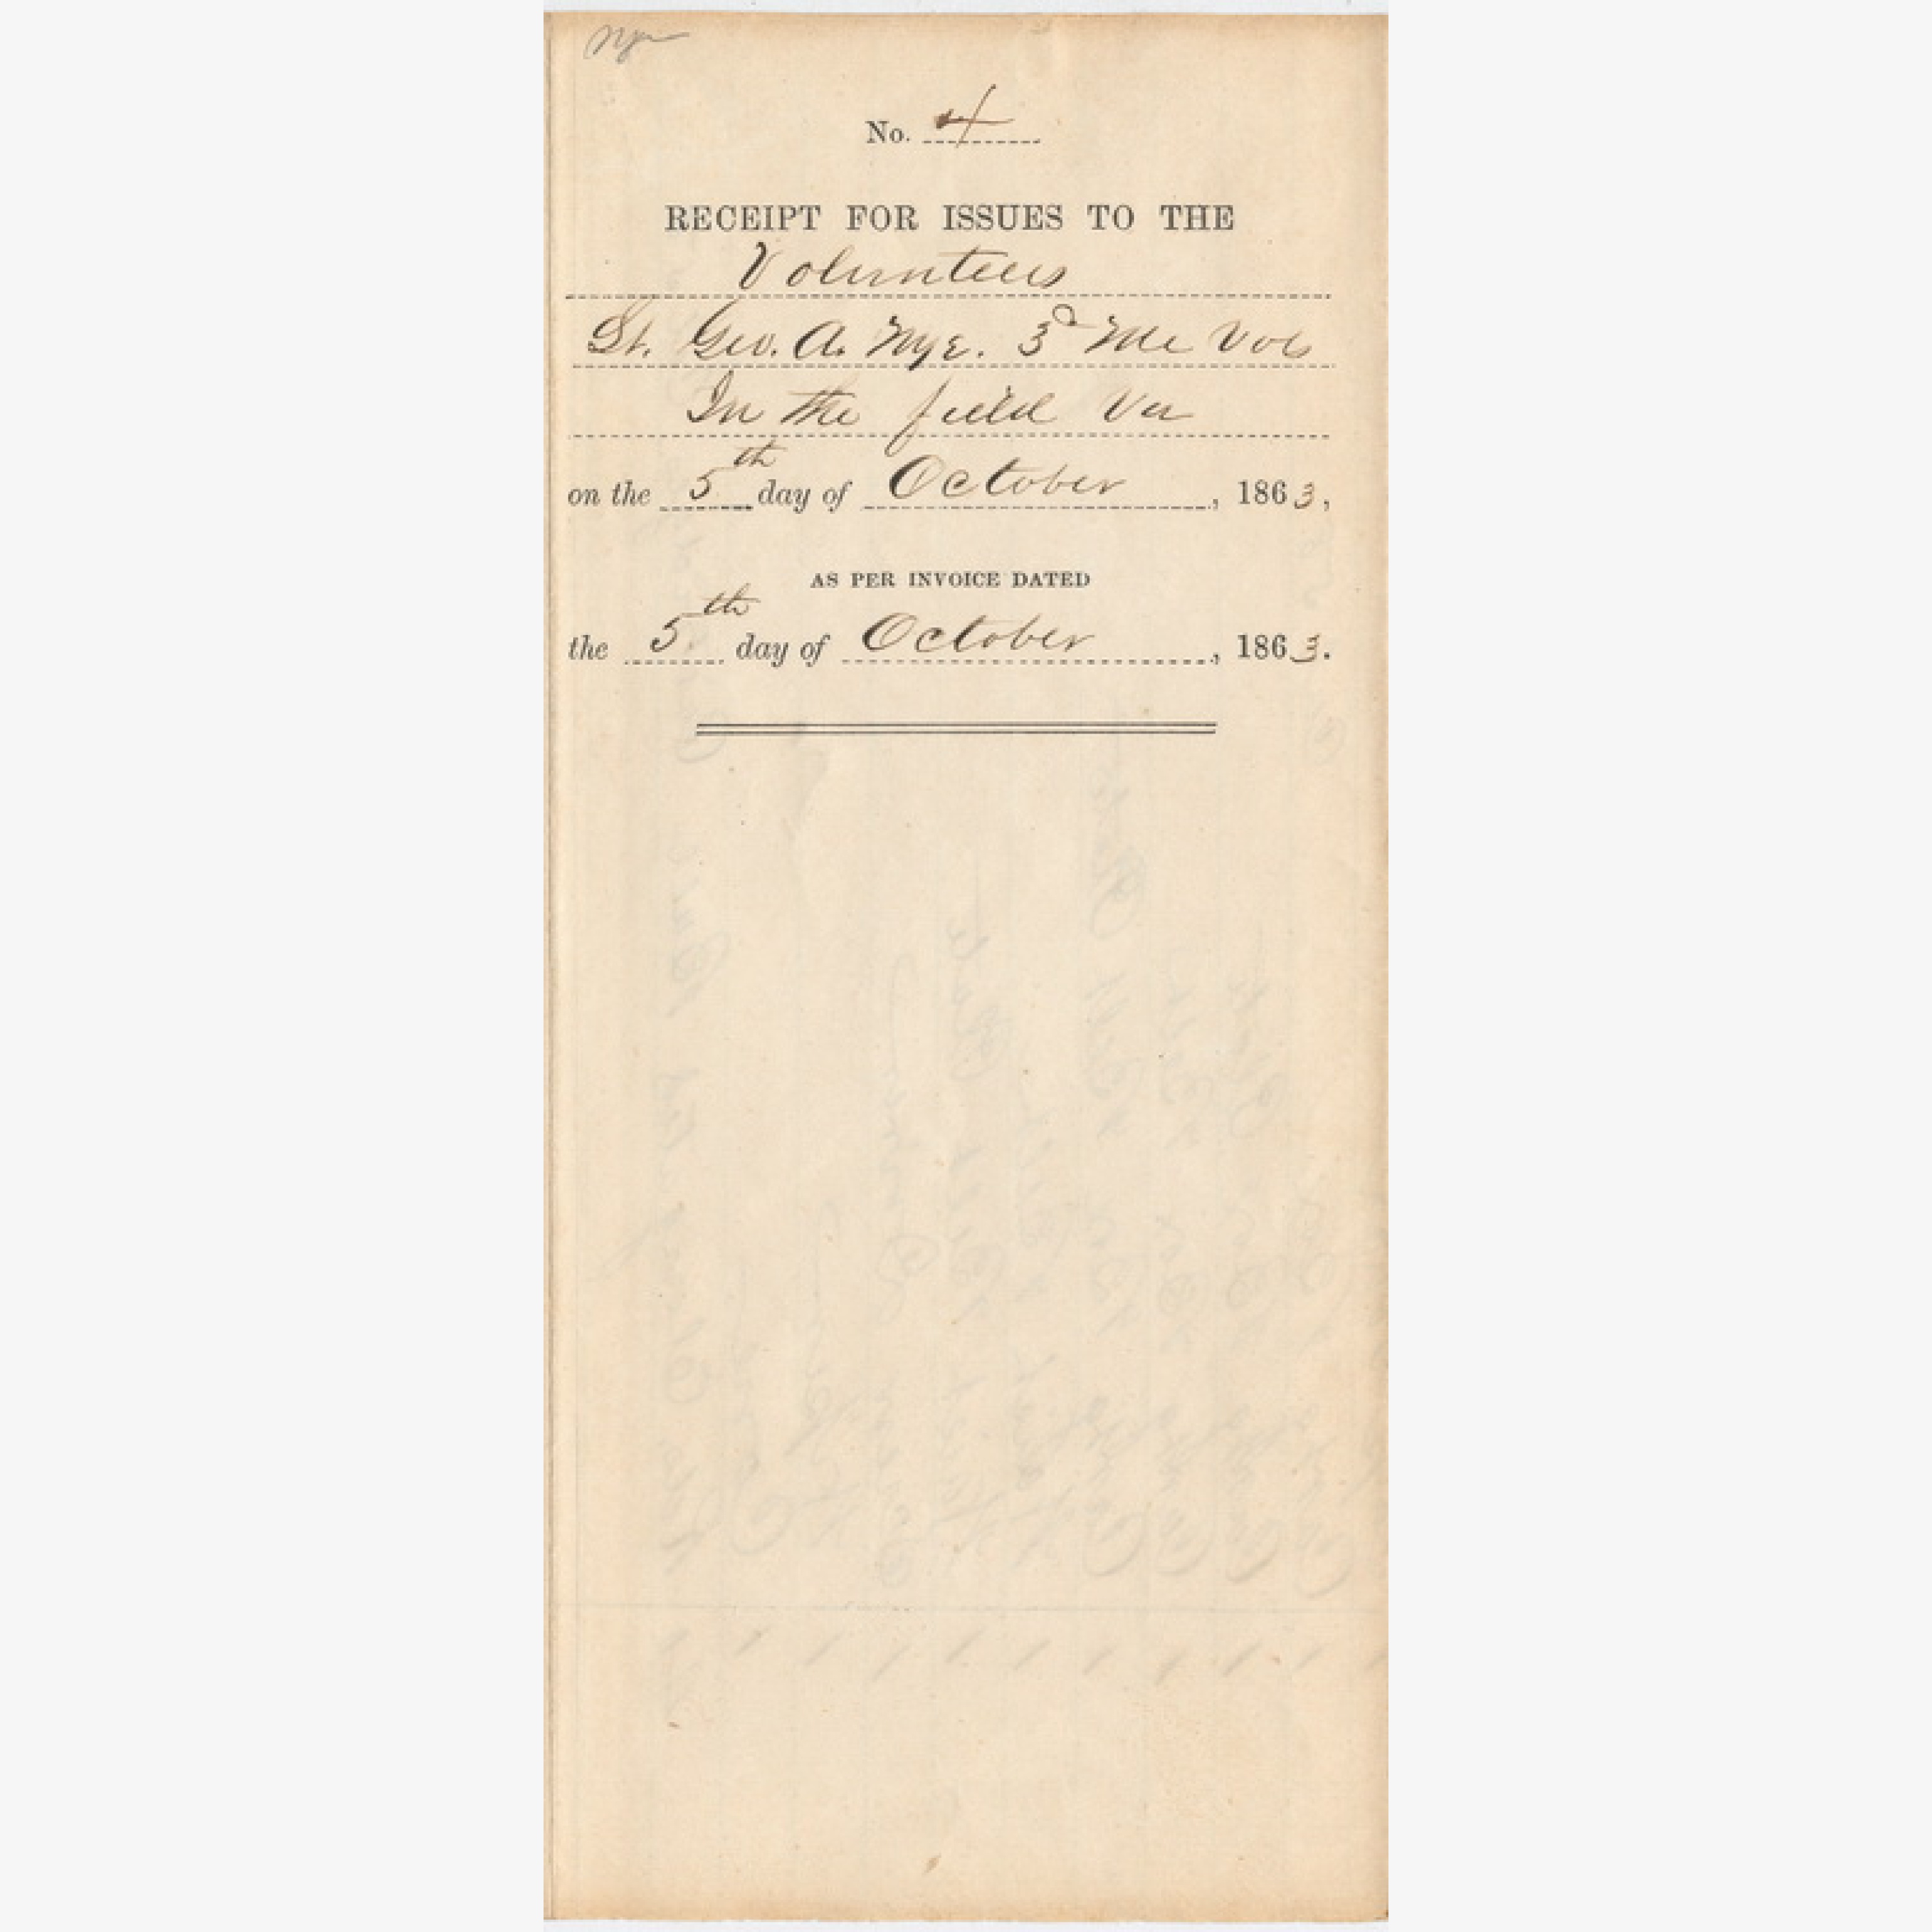 Nye
No. 4
RECEIPT FOR ISSUES TO THE
Volunteers
Lt. Geo. A. Nye. 3d Me Vols
In the field Va
on the 5th day of October, 1863,
AS PER INVOICE DATED
the 5th day of October, 1863.